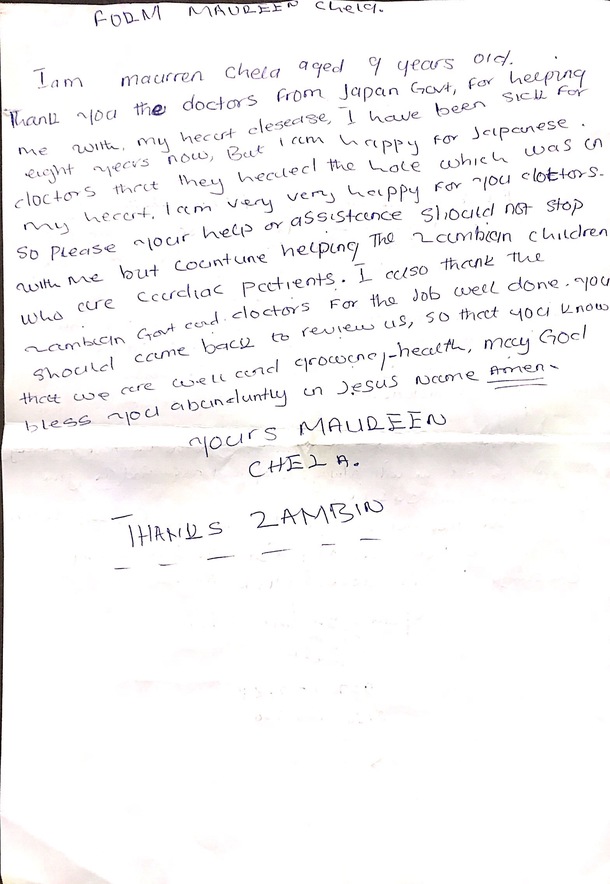 FORM MAUREEN Chela.
I am maurren chela aged 9 years old.
Thank you the doctors from Japan Govt, for helping
me with, my heart desease, I have been sick for
eight years now, But I am happy for Japanese.
doctors that they healed the hole which was in
my heart. I am very very happy for you doctors.
So please your help or assistance should not stop
with me but countune helping The zambian children
who are Cardiac patients. I also thank the
zambian Govt and doctors For the Job well done. you
should came back to review us, so that you know
that we are well and growing-health, may God
bless you abanduntly in Jesus name Amen.
yours MAUREEN
CHELA.
THANKS ZAMBIN